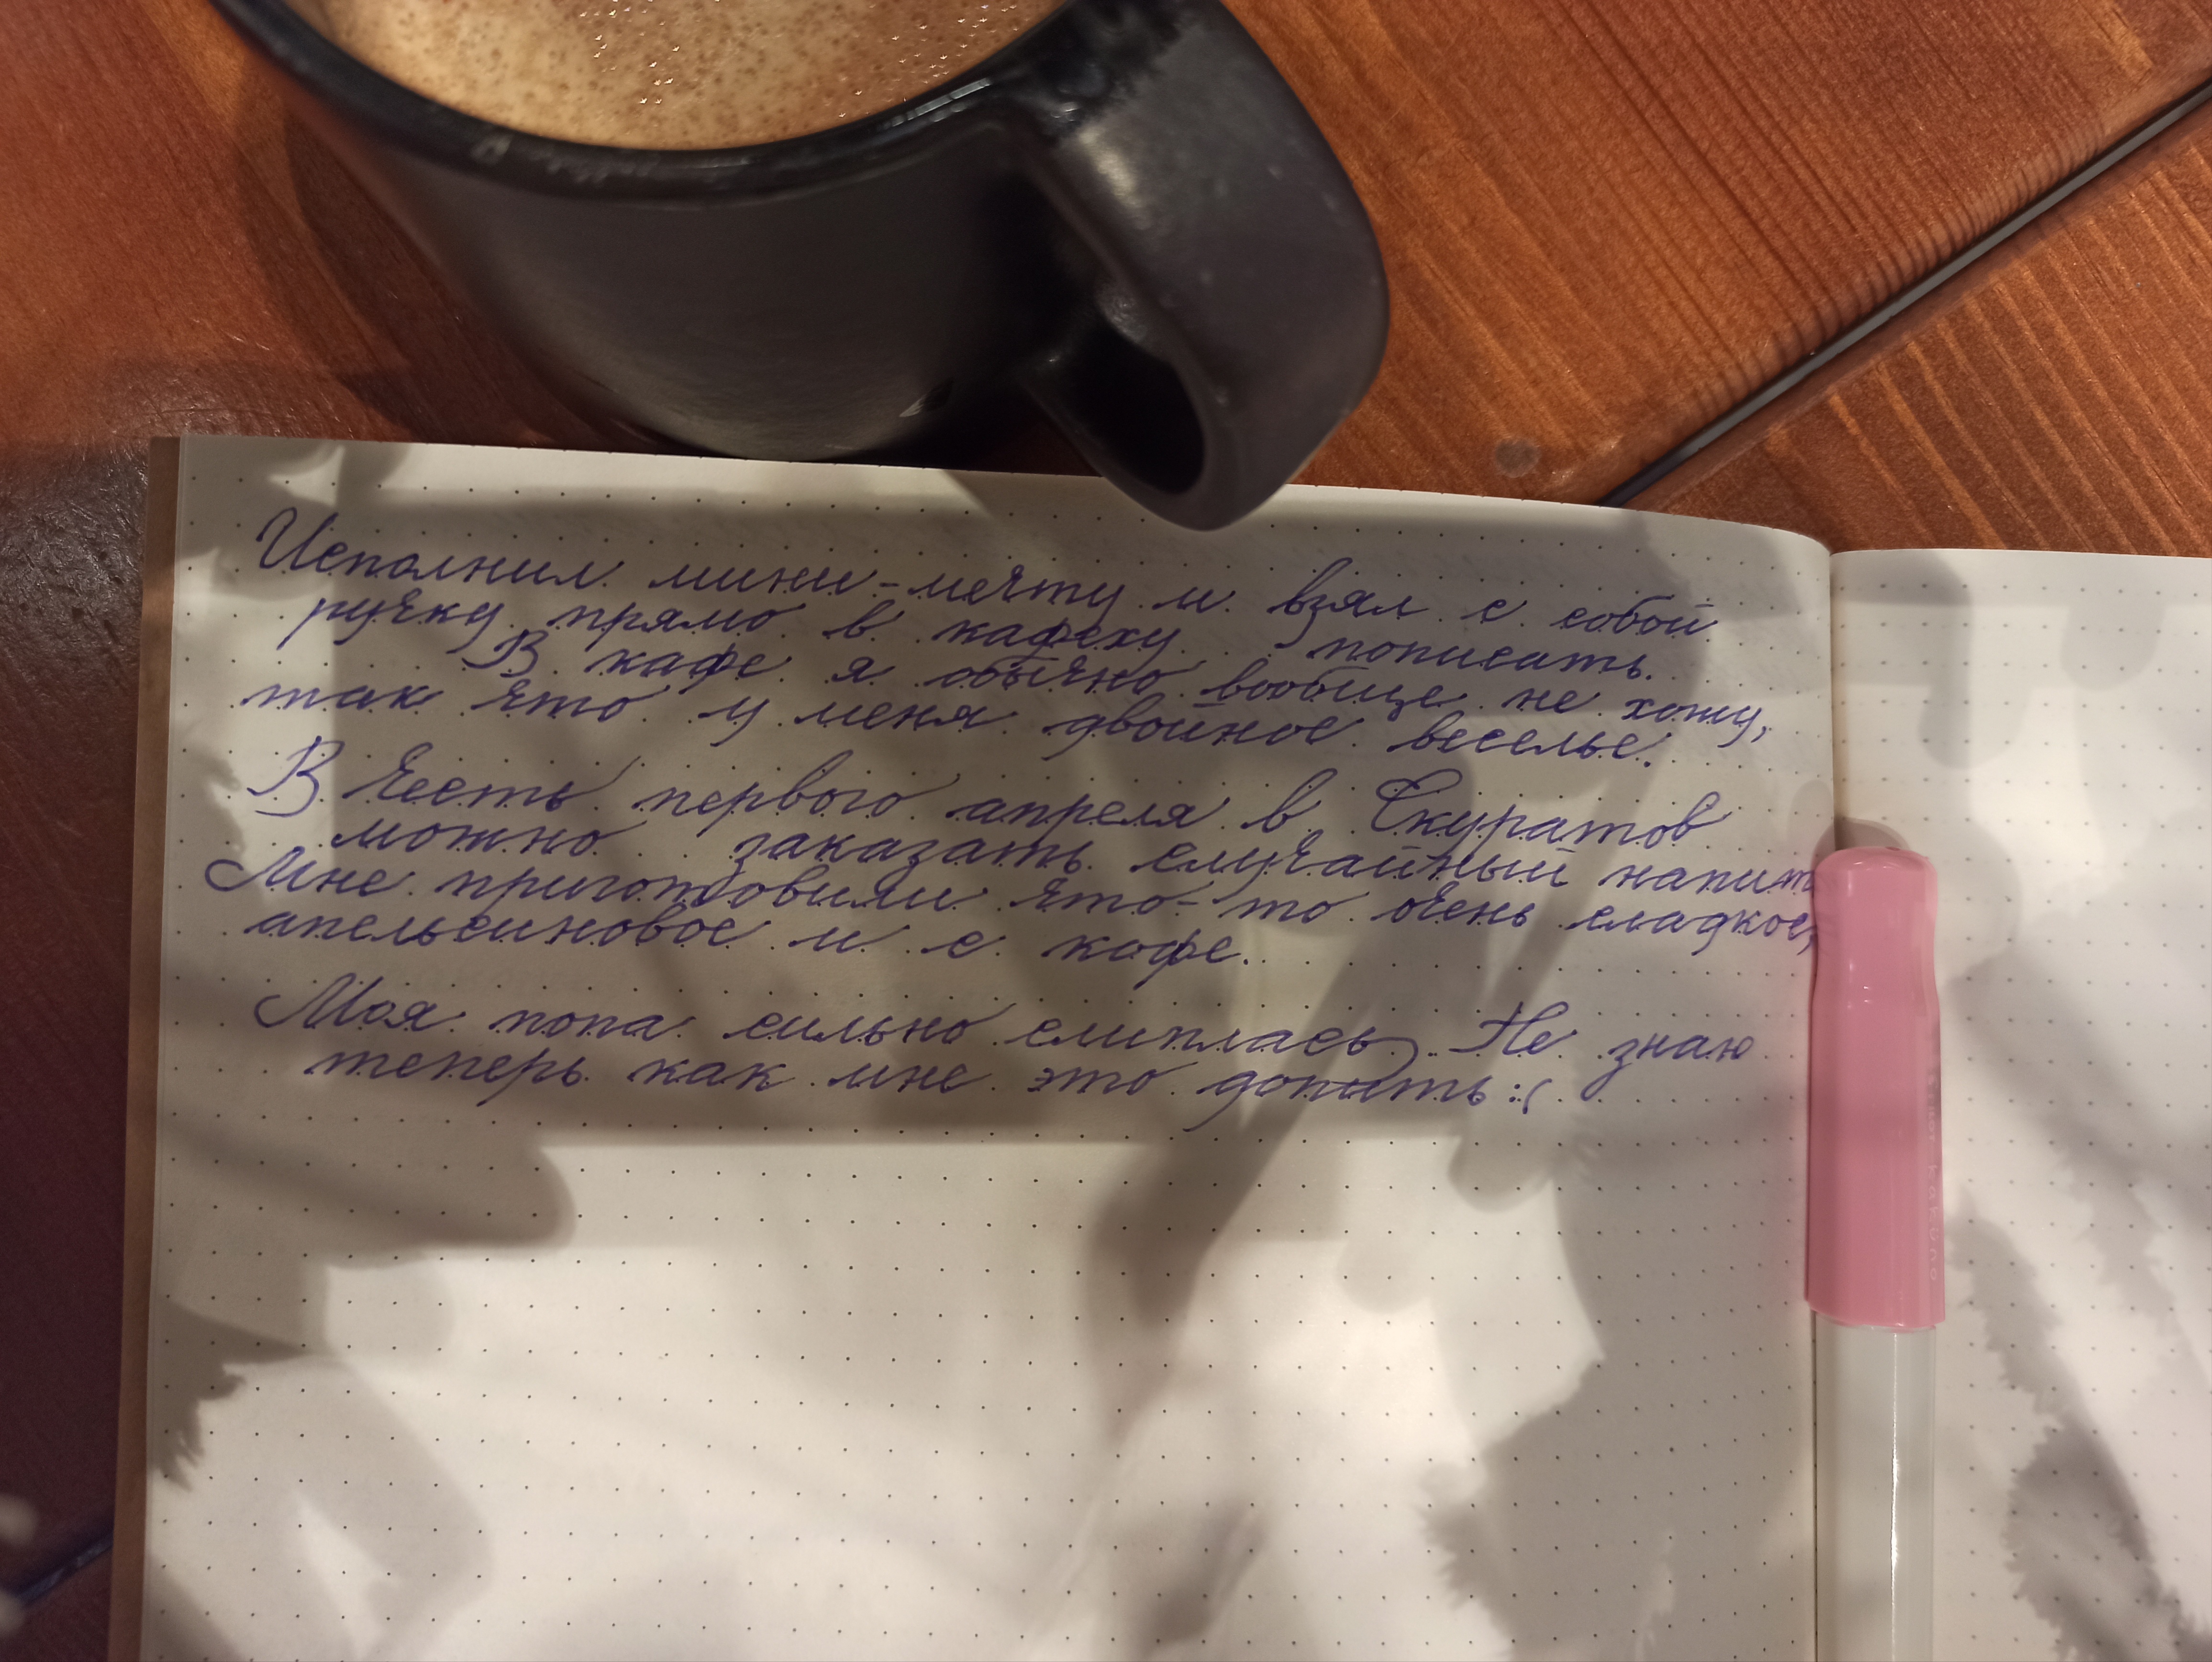 Исполнил мини-мечту и взял с собой
ручку прямо в кафеху пописать.
В кафе я обычно вообще не хожу,
так что у меня двойное веселье.
В честь первого апреля в Скуратов
можно заказать случайный напит
Мне приготовили что-то очень сладкое,
апельсиновое и с кофе.
Моя попа сильно слиплась. Не знаю
теперь как мне это допить :(